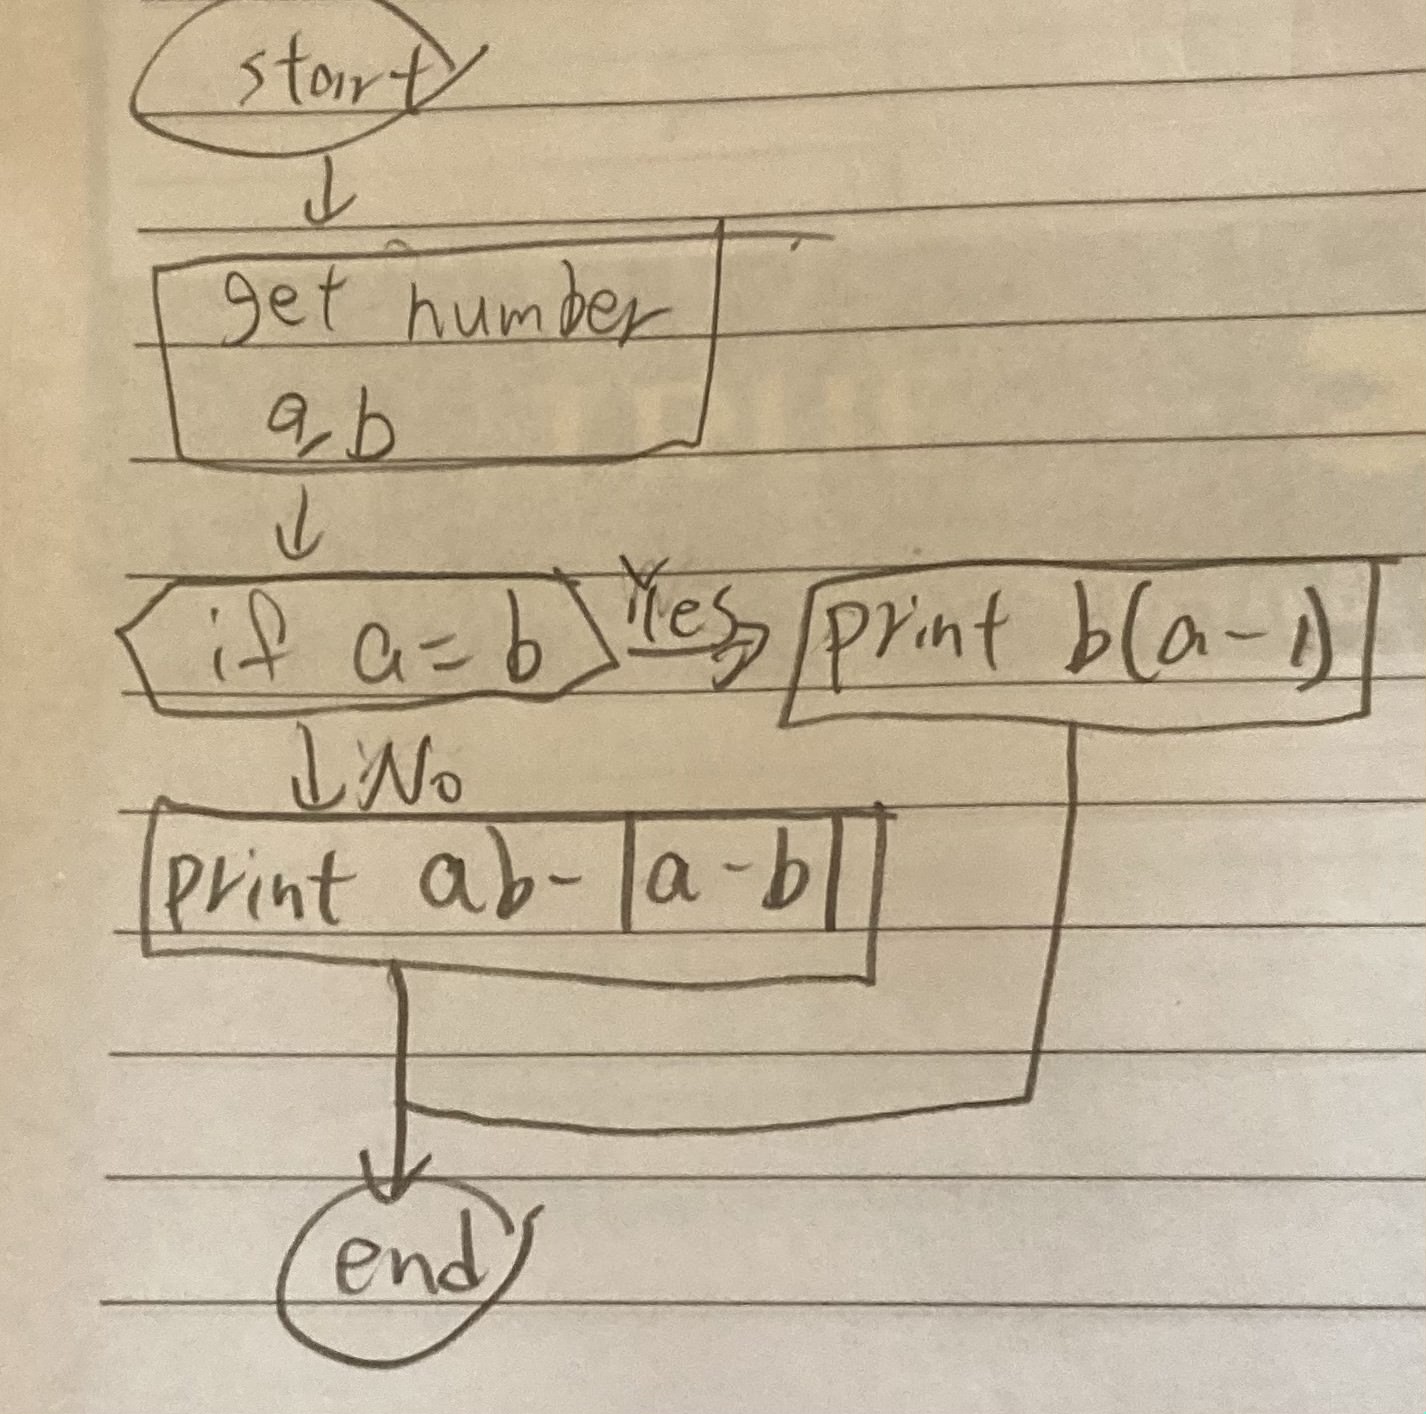 start
get number
a, b
if a = b
Yes
print b(a-1)
No
print ab-|a-b|
end